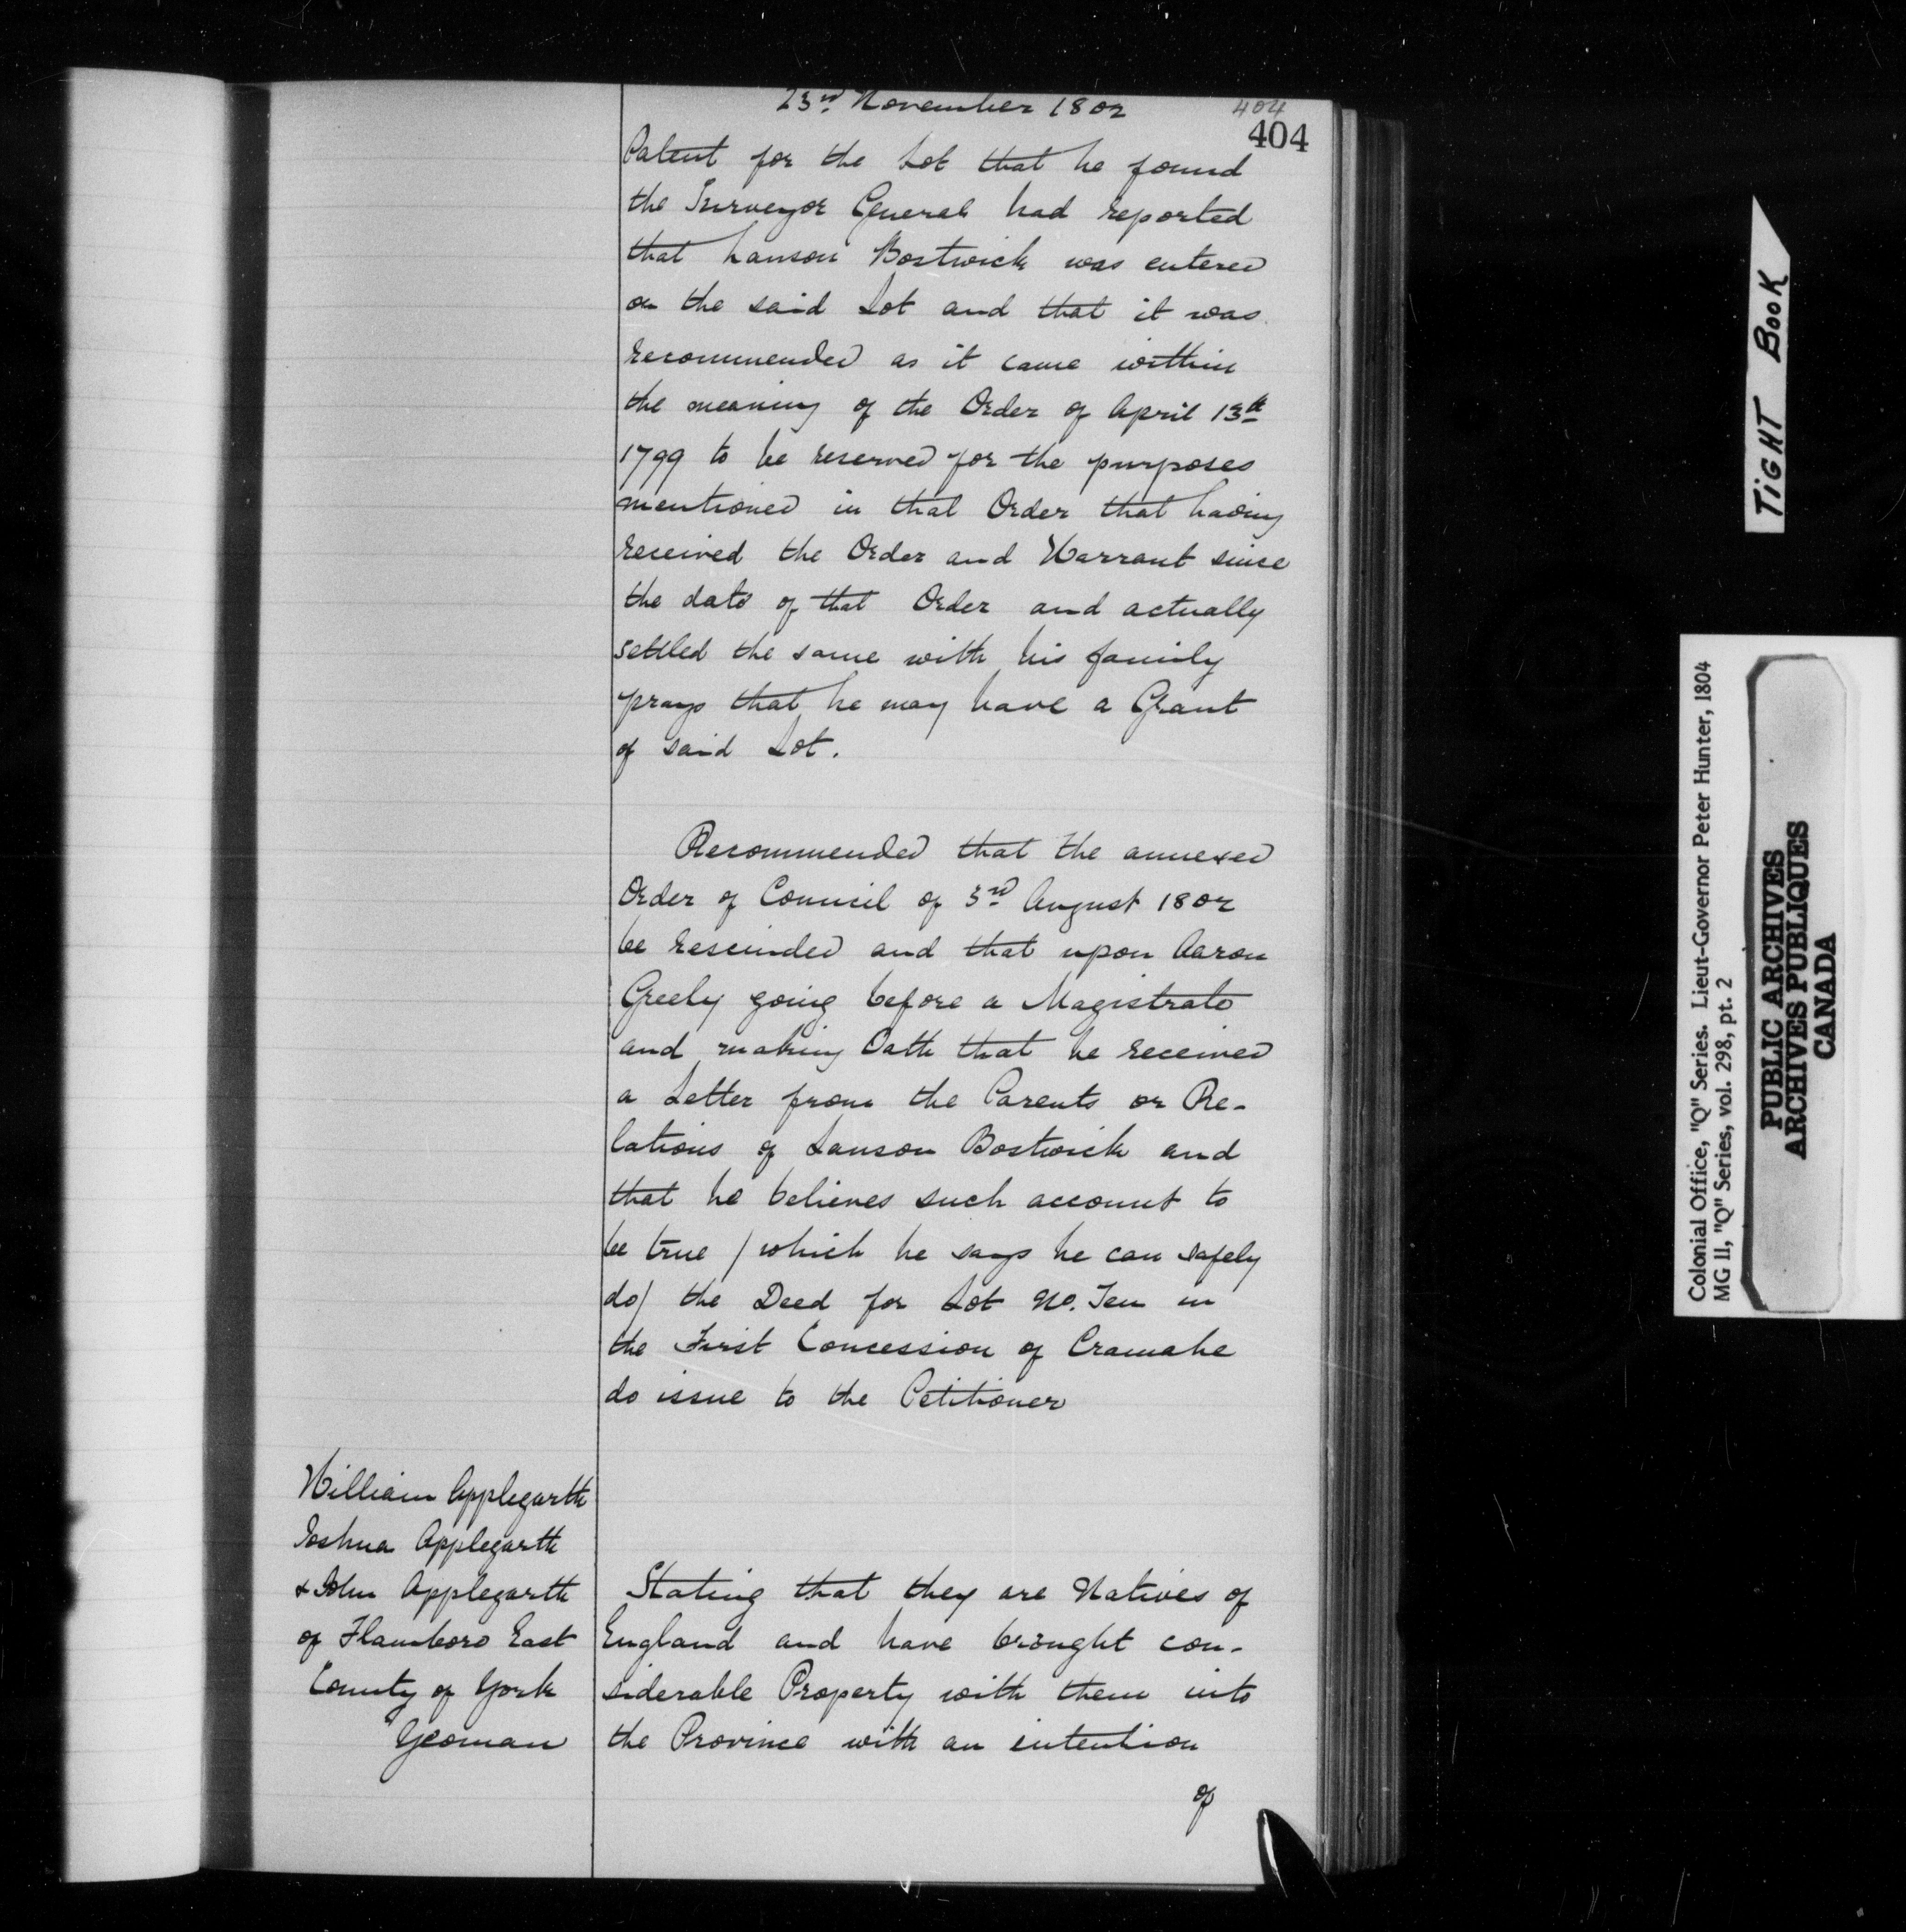 23rd November 1802
404
404
Patent for the Lot that he found
the Surveyor General had reported
that Lanson Bostwick was entered
on the said Lot and that it was
recommended as it came within
the meaning of the Order of April 13th
1799 to be reserved for the purposes
mentioned in that Order that having
received the Order and Warrant since
the date of that Order and actually
settled the same with his family
prays that he may have a Grant
of said Lot.
Recommended that the annexed
Order of Council of 3rd August 1802
be rescinded and that upon Aaron
Greely going before a Magistrate
and making Oath that he received
a Letter from the Parents or Re-
lations of Lanson Bostwick and
that he believes such account to
be true / which he says he can safely
do / the Deed for Lot No. Ten in
the First Concession of Cramahe
do issue to the Petitioner
William Applegarth
Joshua Applegarth
& John Applegarth
of Flamboro East
County of York
Yeoman
Stating that they are Natives of
England and have brought con-
siderable Property with them into
the Province with an intention
of
TIGHT BOOK
Colonial Office, "Q" Series. Lieut-Governor Peter Hunter, 1804
MG 11, "Q" Series, vol. 298, pt. 2
PUBLIC ARCHIVES
ARCHIVES PUBLIQUES
CANADA